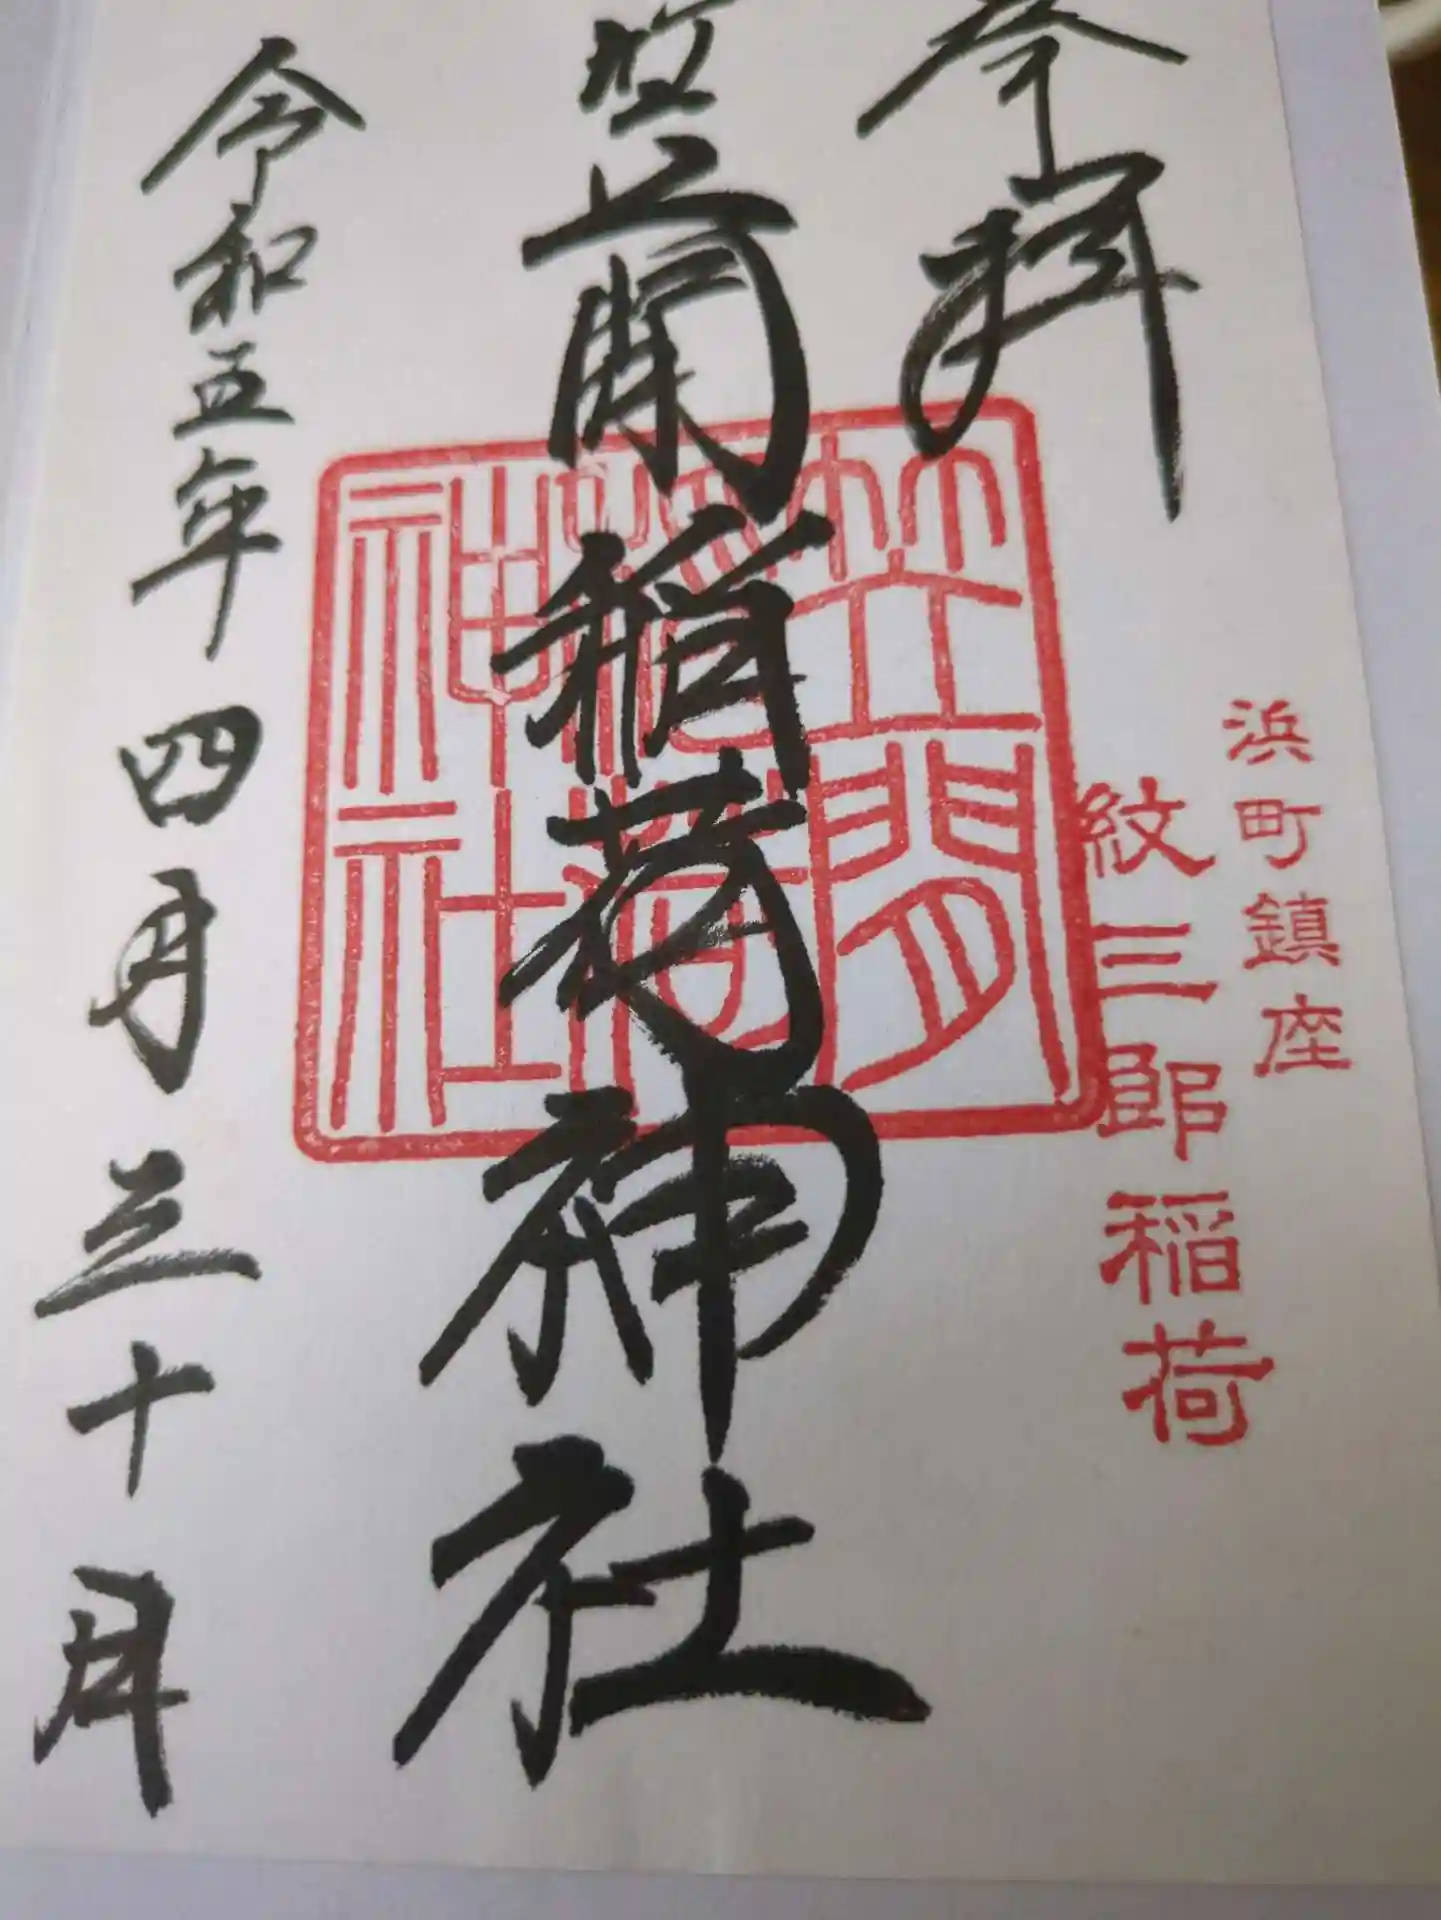 浜町鎮座
紋三郎稲荷
奉拝
笠間稲荷神社
笠間
稲荷
神社
令和五年四月三十日